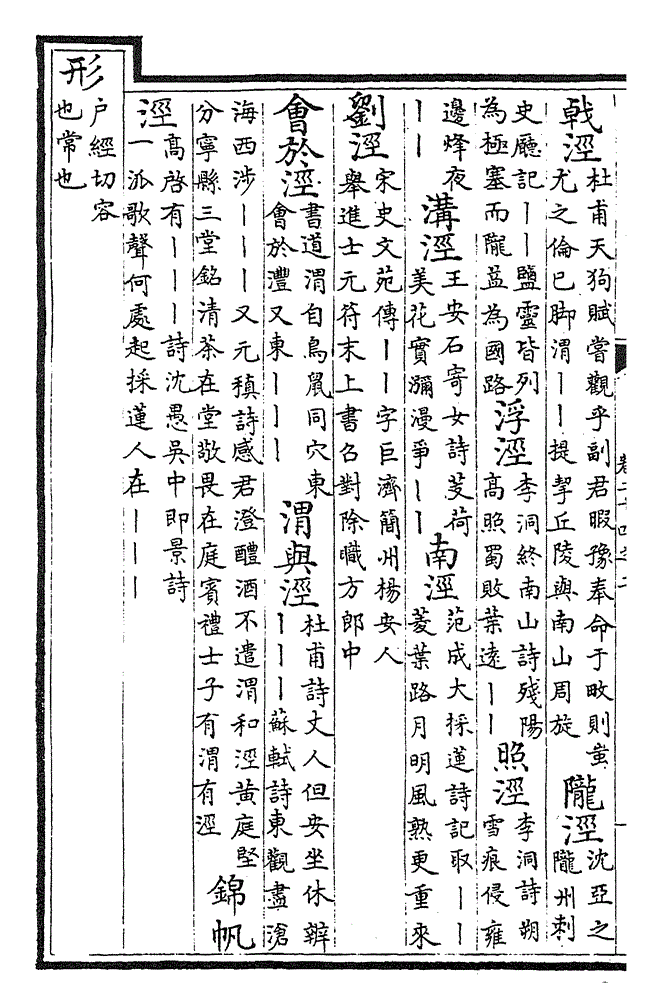 戟涇
杜甫天狗賦嘗觀乎副君暇豫奉命于畋則蚩
尤之倫已脚渭丨丨提挈丘陵與南山周旋
隴涇
沈亞之
隴州刺
史廳記丨丨鹽靈皆列
為極塞而隴益為國路
浮涇
李洞終南山詩殘陽
高照蜀敗葉遠丨丨
照涇
李洞詩朔
雪痕侵雍
邊烽夜
丨丨
溝涇
王安石寄女詩芰荷
美花實瀰漫爭丨丨
南涇
范成大採蓮詩記取丨丨
菱葉路月明風熟更重來
劉涇
宋史文苑傳丨丨字巨濟簡州楊安人
舉進士元符末上書召對除職方郎中
會於涇
書道渭自鳥鼠同穴東
會於灃又東丨丨丨
渭與涇
杜甫詩丈人但安坐休辨
丨丨丨蘇軾詩東觀盡滄
海西涉丨丨丨又元稹詩感君澄醴酒不遣渭和涇黃庭堅
分寧縣三堂銘清茶在堂敬畏在庭賓禮士子有渭有涇
錦帆
涇
高啓有丨丨丨詩沈愚吳中即景詩
一派歌聲何處起採蓮人在丨丨丨
形
户經切容
也常也